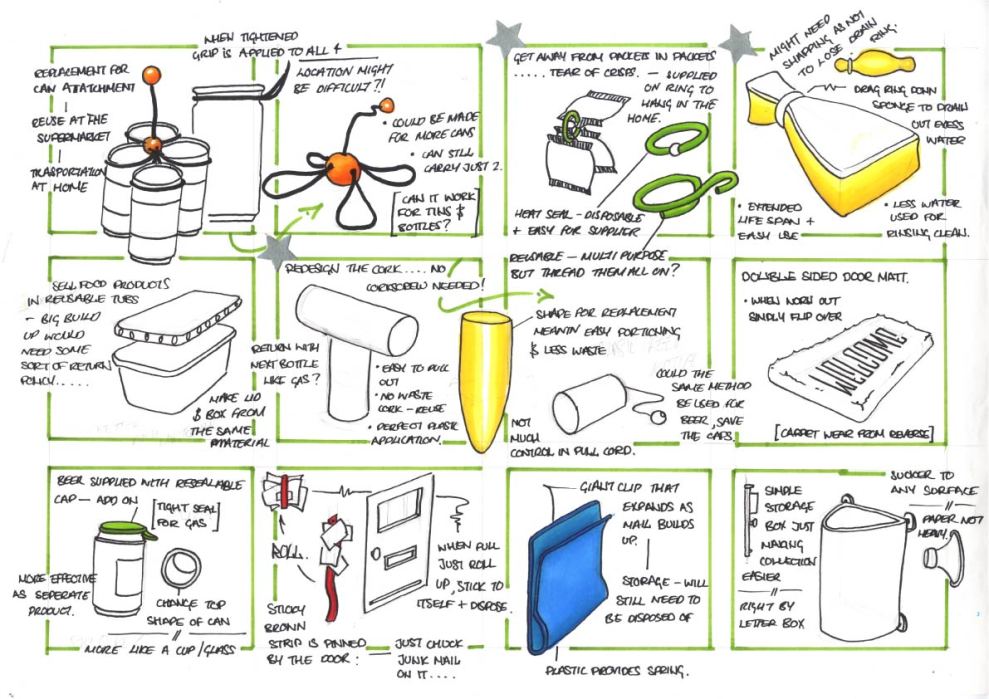 WHEN TIGHTENED
GRIP IS APPLIED TO ALL 4
REPLACEMENT FOR
CAN ATATCHMENT
REUSE AT THE
SUPERMARKET
TRASPORTATION
AT HOME
LOCATION MIGHT
BE DIFFICULT?!
• COULD BE MADE
FOR MORE CANS
• CAN STILL
CARRY JUST 2.
[CAN IT WORK
FOR TINS &
BOTTLES?]
GET AWAY FROM PACKETS IN PACKETS
..... TEAR OF CRISPS. — SUPPLIED
ON RING TO
HANG IN THE
HOME.
HEAT SEAL - DISPOSABLE
+ EASY FOR SUPPLIER
REUSABLE - MULTI PURPOSE
BUT THREAD THEM ALL ON?
MIGHT NEED
SHAPPING AS NOT
TO LOSE DRAIN
RING.
DRAG RING DOWN
SPONGE TO DRAIN
OUT EXESS
WATER
• EXTENDED
LIFE SPAN +
EASY USE
• LESS WATER
USED FOR
RINSING CLEAN.
SELL FOOD PRODUCTS
IN REUSABLE TUBS
- BIG BUILD
UP WOULD
NEED SOME
SORT OF RETURN
POLICY.....
MAKE LID
& BOX FROM
THE SAME
MATERIAL
REDESIGN THE CORK.... NO
CORKSCREW NEEDED!
RETURN WITH
NEXT BOTTLE
LIKE GAS?
• EASY TO PULL
OUT
• NO WASTE
CORK - REUSE
• PERFECT PLASTIC
APPLICATION.
SHAPE FOR REPLACEMENT
MEANTIN EASY PORTIONING
& LESS WASTE
COULD THE
SAME METHOD
BE USED FOR
BEER, SAVE
THE CAPS.
NOT
MUCH
CONTROL IN PULL CORD.
DOUBLE SIDED DOOR MATT.
• WHEN WORN OUT
SIMPLY FLIP OVER
WELCOME
[CARPET WEAR FROM REVERSE]
BEER SUPPLIED WITH RESEALABLE
CAP - ADD ON
[TIGHT SEAL
FOR GAS]
MORE EFFECTIVE
AS SEPERATE
PRODUCT.
CHANGE TOP
SHAPE OF CAN
MORE LIKE A CUP/GLASS
ROLL.
STICKY
STRIP IS PINNED
BY THE DOOR:
WHEN FULL
JUST ROLL
UP, STICK TO
ITSELF + DISPOSE.
JUST CHUCK
JUNK MAIL
ON IT....
GIANT CLIP THAT
EXPANDS AS
MAIL BUILDS
UP.
STORAGE - WILL
STILL NEED TO
BE DISPOSED OF
PLASTIC PROVIDES SPRING.
SIMPLE
STORAGE
BOX JUST
MAKING
COLLECTION
EASIER
RIGHT BY
LETTER BOX
SUCKER TO
ANY SURFACE
PAPER NOT
HEAVY.